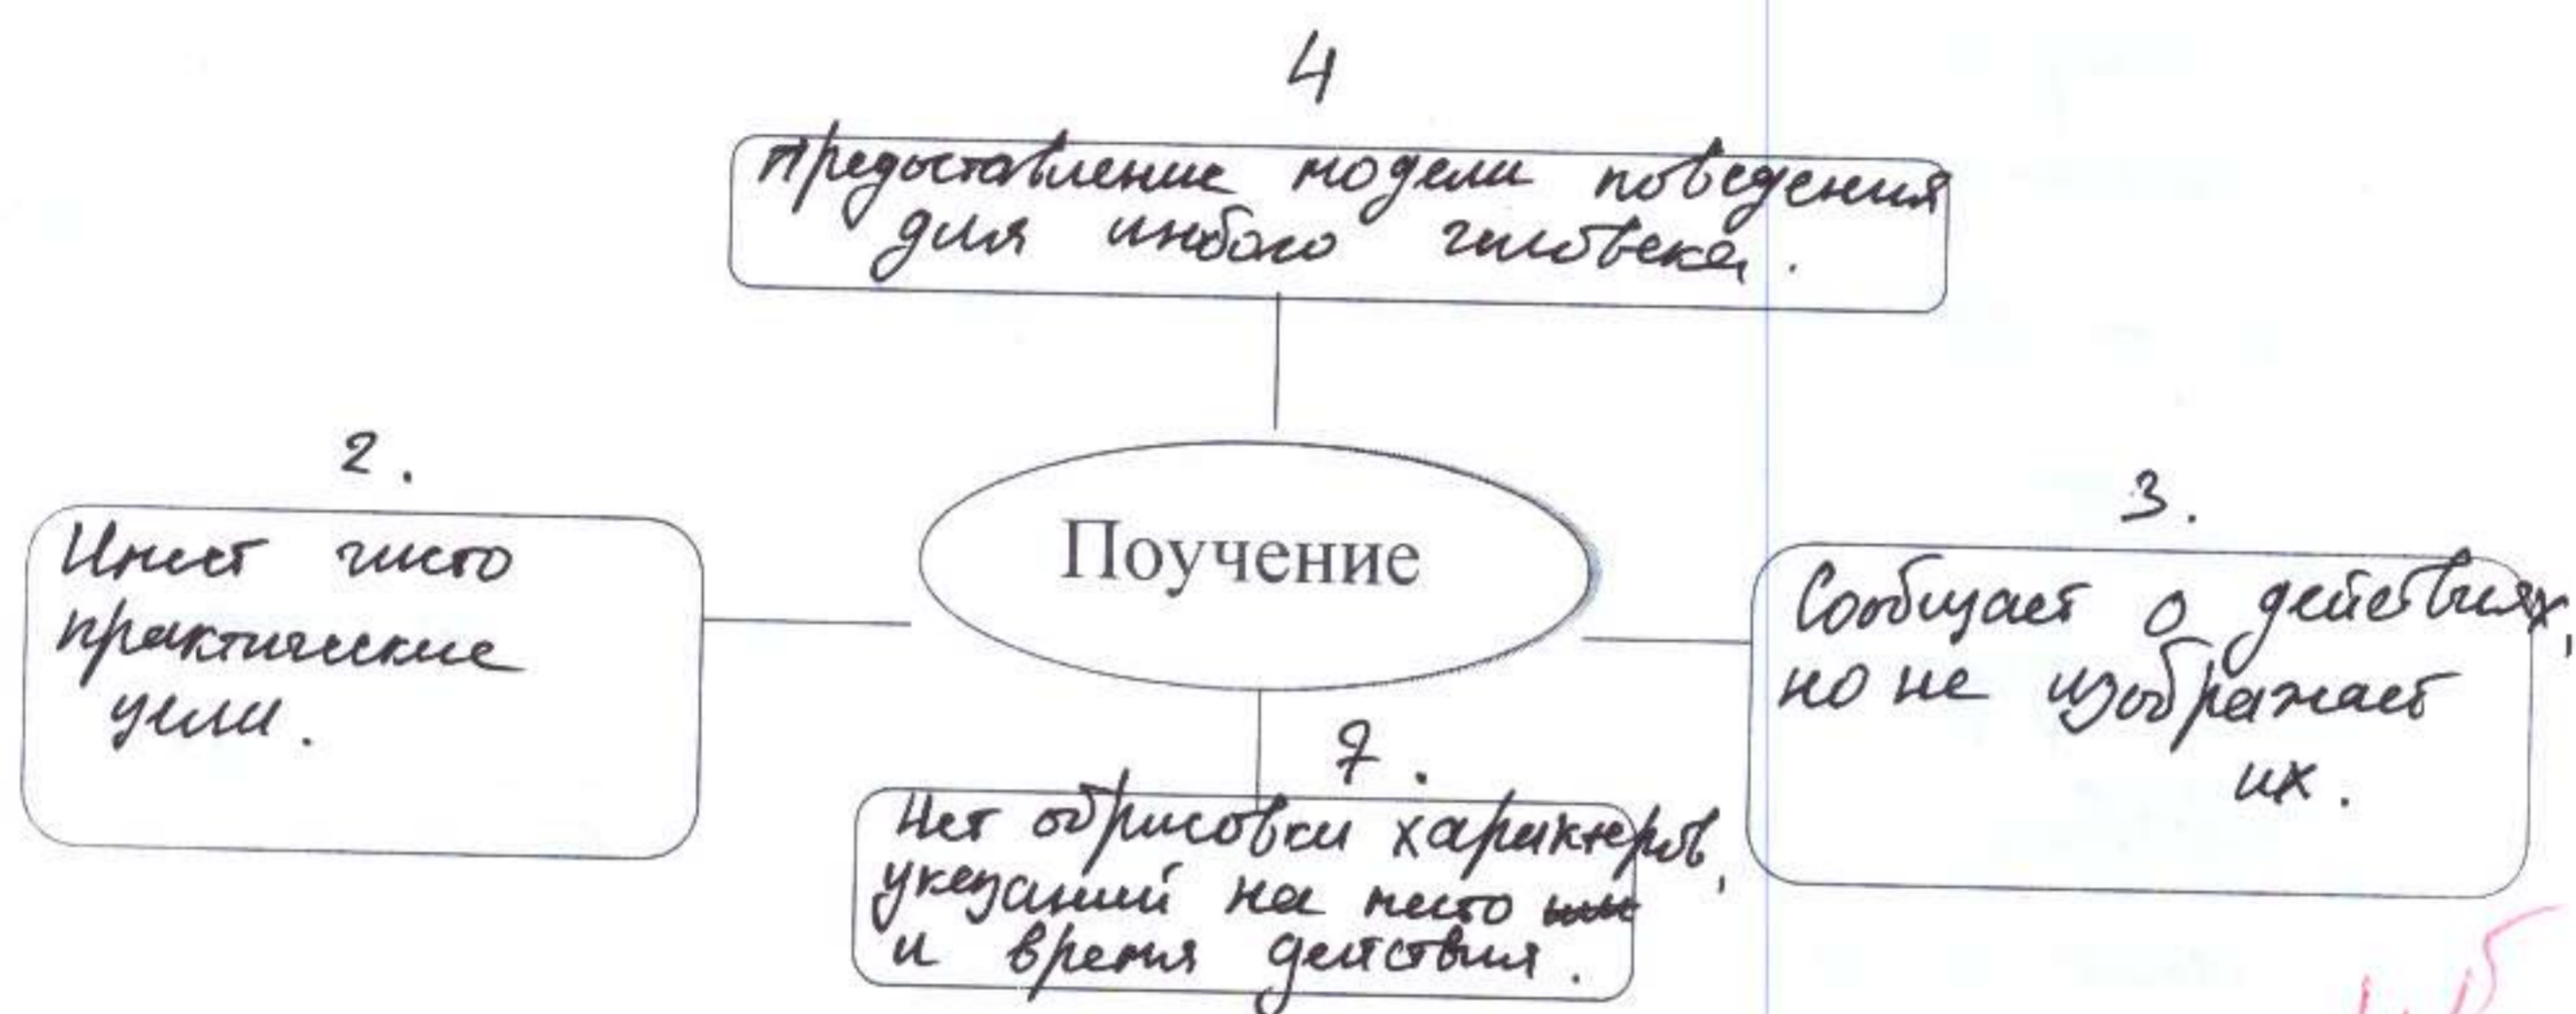 4
предоставление модели поведения
для любого человека.
2.
Имеет чисто
практические
цели.
Поучение
3.
Сообщает о действиях,
но не изображает
их.
7.
Нет обрисовки характеров,
указаний на место
и время действия.